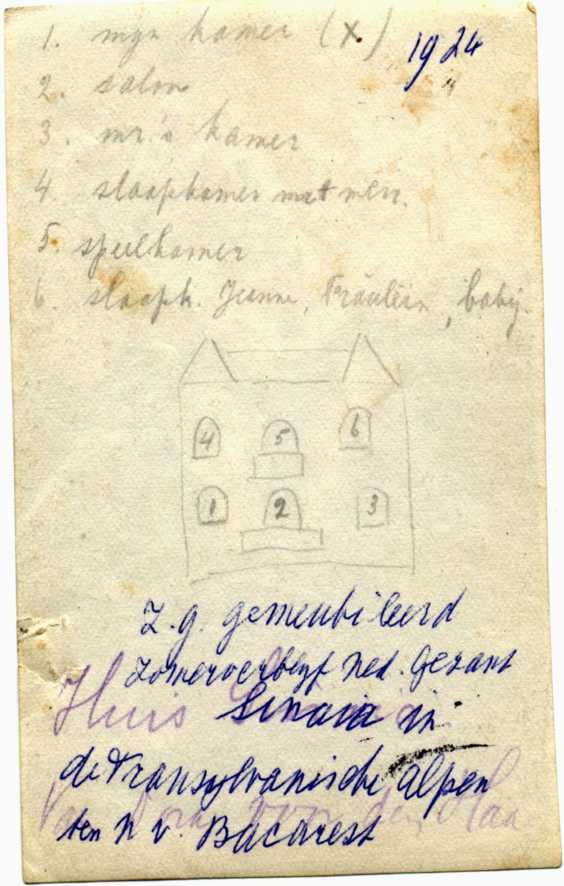 1924
1. mijn kamer (x)
2. salon
3. mr.'s kamer
4 slaapkamer mr + mevr.
5. speelkamer
6. slaapk. Jeanne, Fräulein, baby.
4 5 6
1 2 3
z.g. gemeubileerd
zomerverblijf Ned. Gezant
Huis
Sinaia in
de Transylvanische Alpen
ten N v. Bucarest